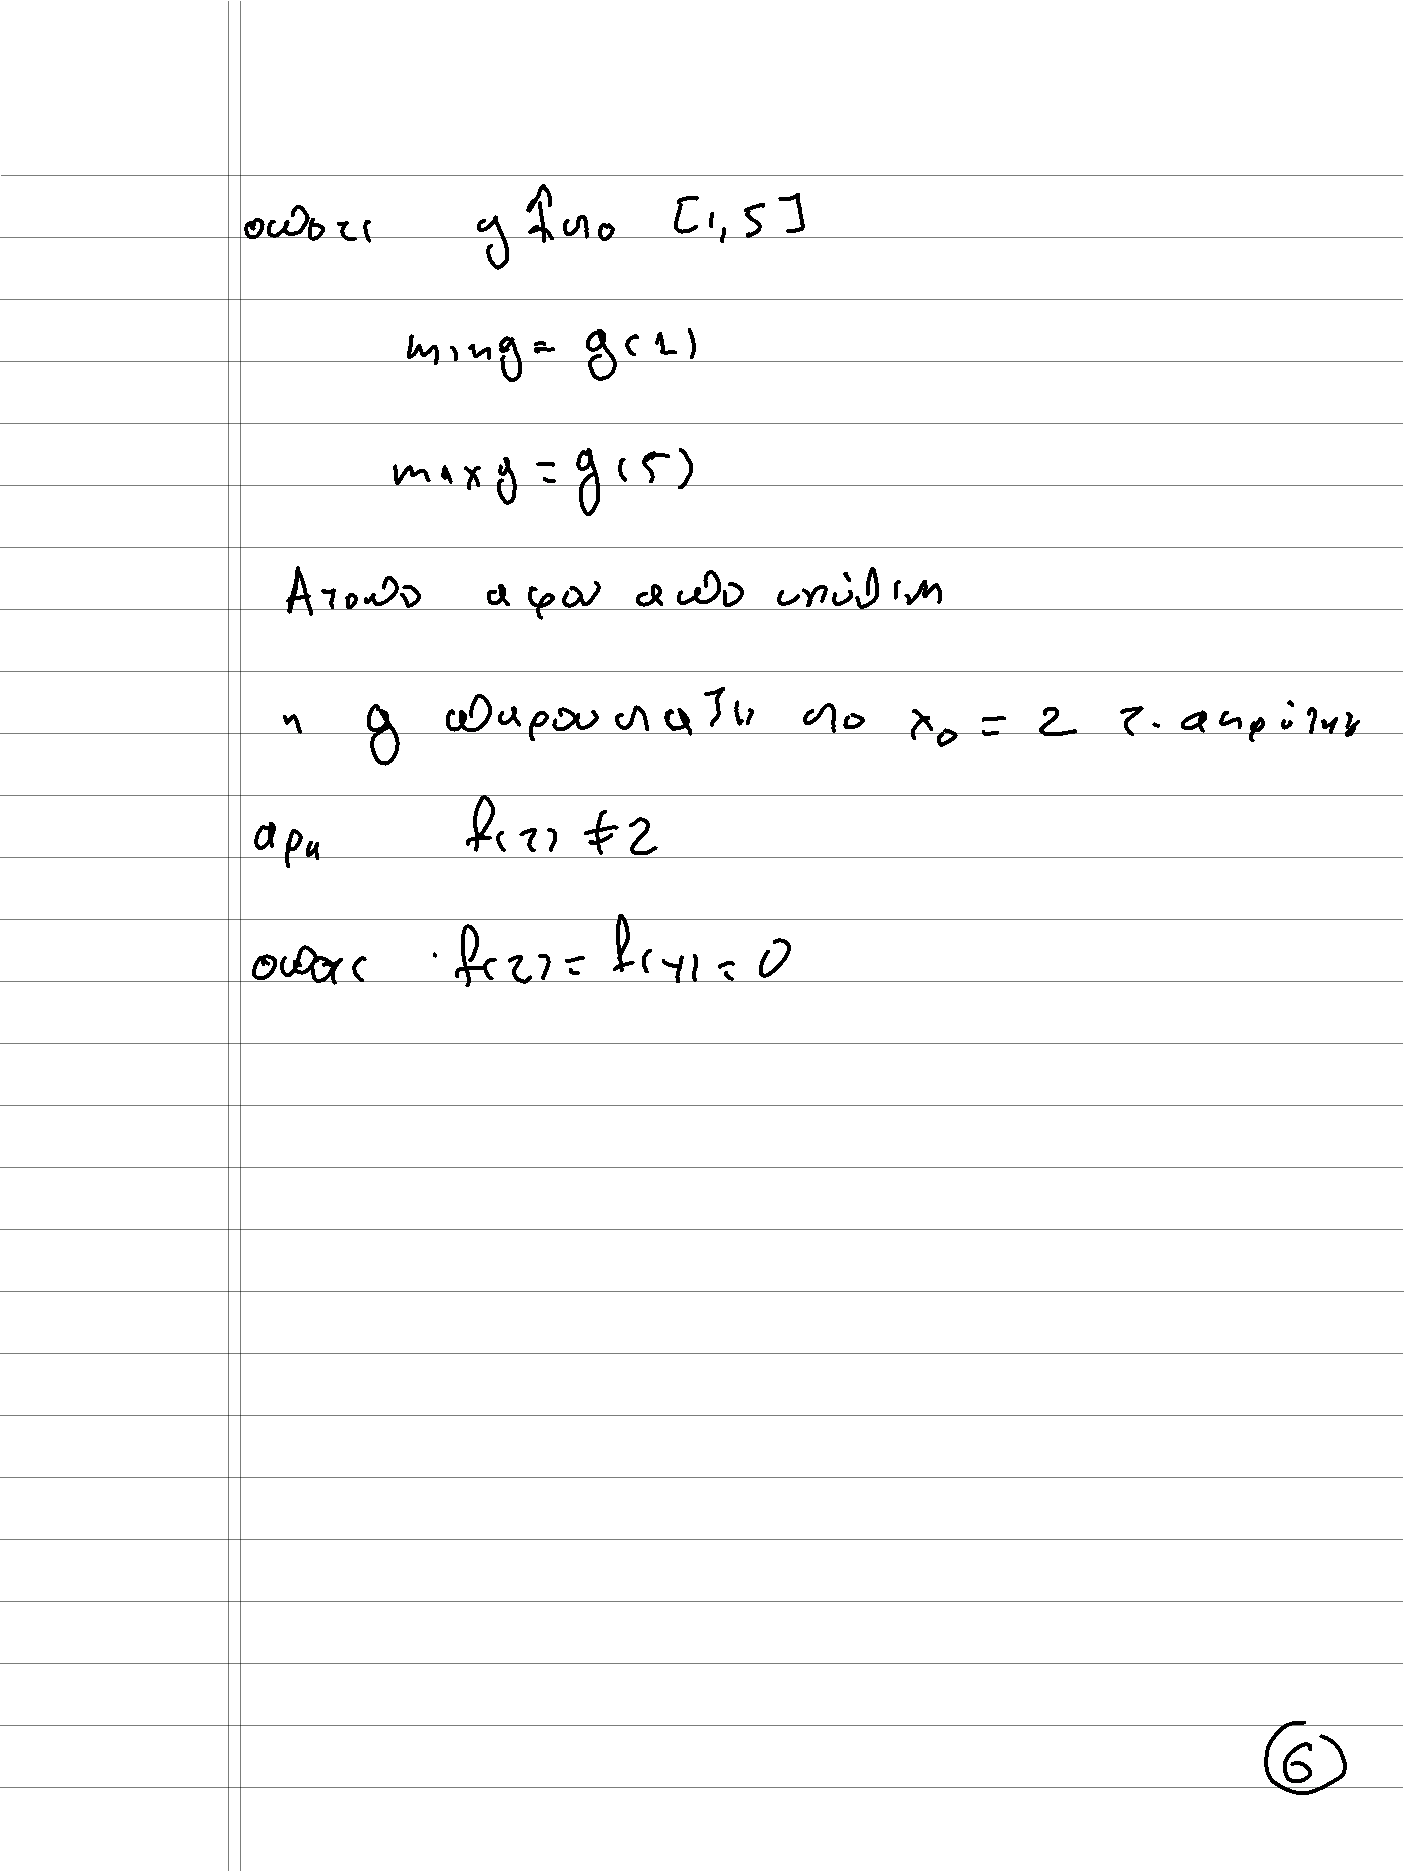 οπότε g ↑ στο [1,5]
min g = g(1)
max g = g(5)
Άτοπο αφού από υπόθεση
η g παρουσιάζει στο x₀ = 2 τ. ακρότατο
άρα f(2) ≠ 2
οπότε f(2) = f(4) = 0
6